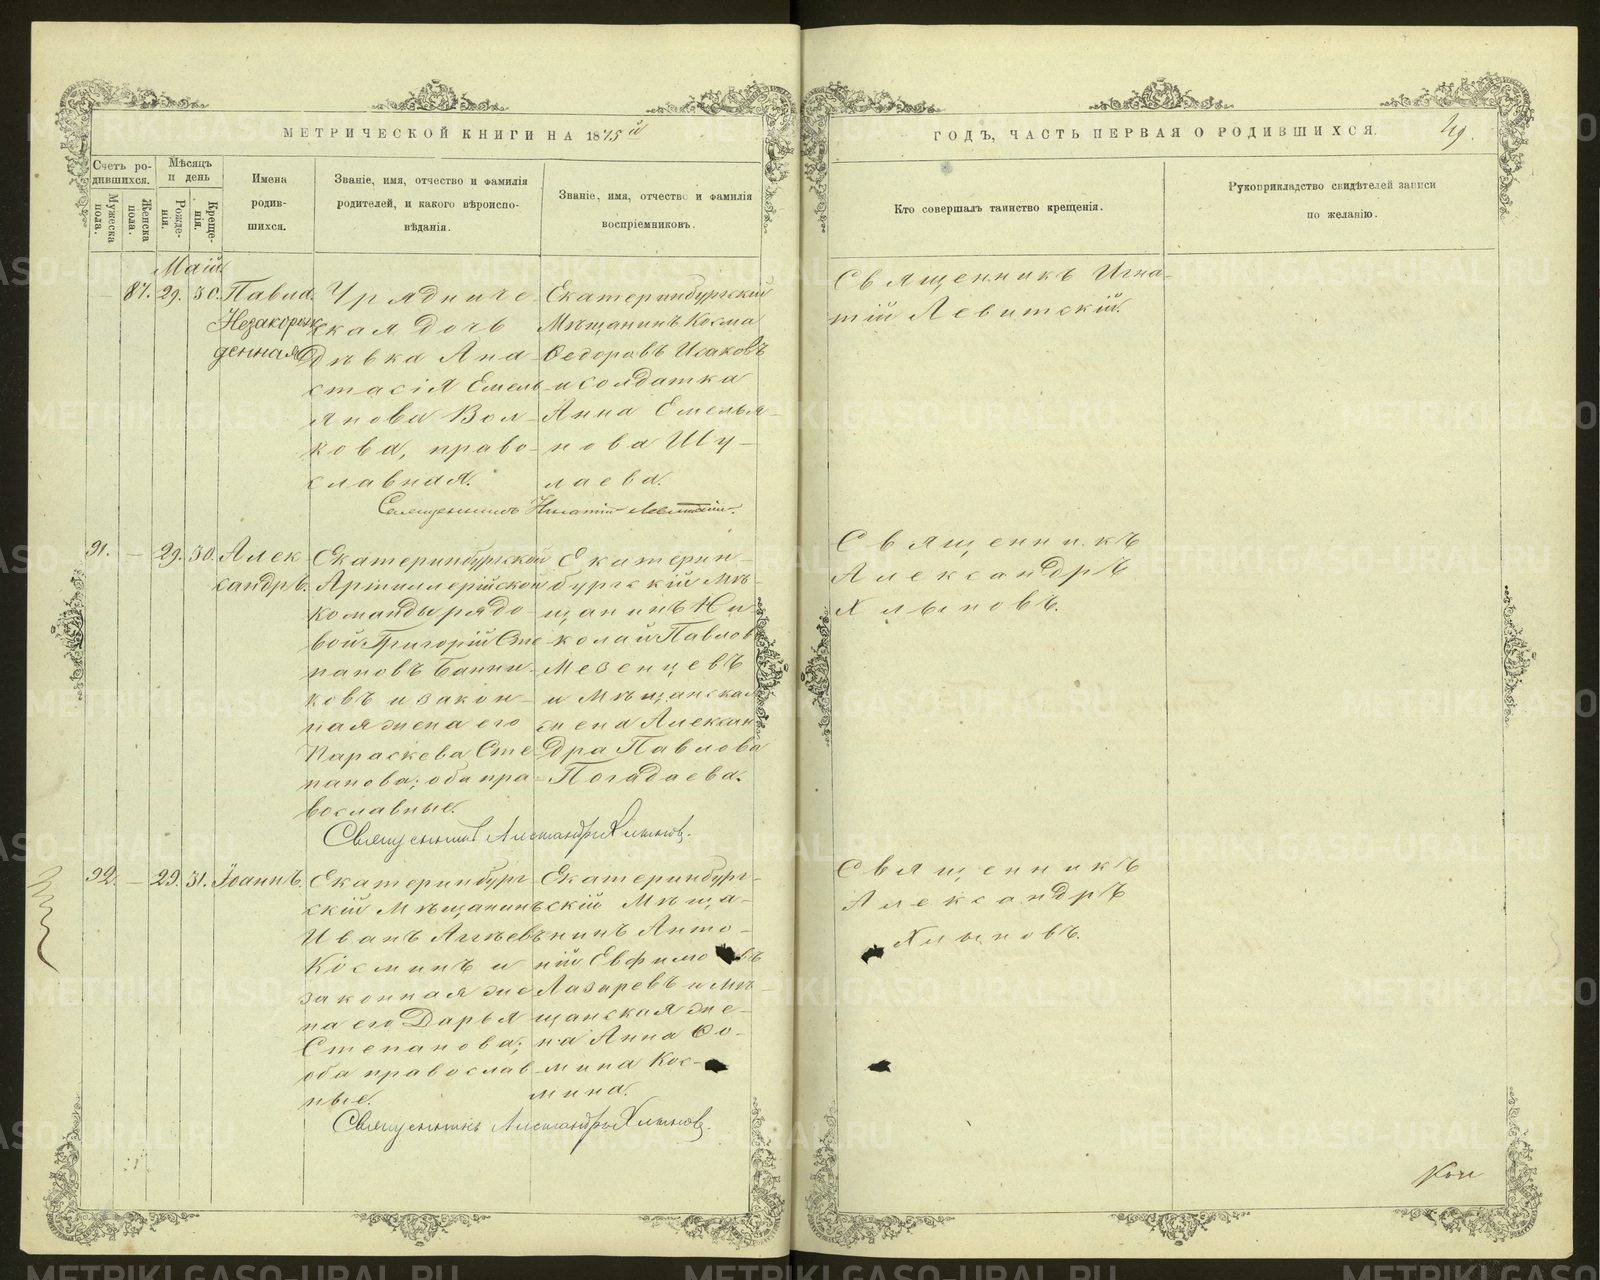 МЕТРИЧЕСКОЙ КНИГИ НА 1875й
ГОДЪ, ЧАСТЬ ПЕРВАЯ О РОДИВШИХСЯ.
Счетъ ро-
дившихся.
Мужеска
пола.
Женска
пола.
Мѣсяцъ
и день
Рожде-
нія.
Креще-
нія.
Имена
родив-
шихся.
Званіе, имя, отчество и фамилія
родителей, и какого вѣроиспо-
вѣданія.
Званіе, имя, отчество и фамилія
воспріемниковъ.
Кто совершалъ таинство крещенія.
Рукоприкладство свидѣтелей записи
по желанію.
Маій
87. 29. 30. Павла.
Незаконорож
денная
Урядниче
ская дочь
Дѣвка Ана
стасія Емель
янова Вол-
кова, право-
славная.
Екатеринбургскій
Мѣщанинъ Козма
Ѳедоровъ Исаковъ
и солдатка
Анна Емелья-
нова Шу-
лаева.
Священникъ Игна-
тій Левитскій.
Священникъ Игнатій Левитскій.
91. — 29. 30. Алек
сандръ.
Екатеринбургской
Артиллерійской
команды рядо
вой Григорій Сте
пановъ Банни
ковъ и закон
ная жена его
Параскева Сте
панова; оба пра
вославные.
Екатерин-
бургскій мѣ-
щанинъ Ни
колай Павлов
Мезенцевъ
и Мѣщанская
жена Алексан
дра Павлова
Погадаева.
Священникъ
Александръ
Хлыновъ.
Священникъ Александръ Хлыновъ.
92. — 29. 31. Іоаннъ.
Екатеринбург
скій Мѣщанинъ
Иванъ Агѣевъ
Косминъ и
законная же
на его Дарья
Степанова;
оба православ
ные.
Екатеринбург-
скій Мѣща-
нинъ Анто-
ній Евфимовъ
Лазаревъ и мѣ-
щанская же-
на Анна Ѳо-
мина Кос-
мина.
Священникъ
Александръ
Хлыновъ.
Священникъ Александръ Хлыновъ.
METRIKI.GASO-URAL.RU